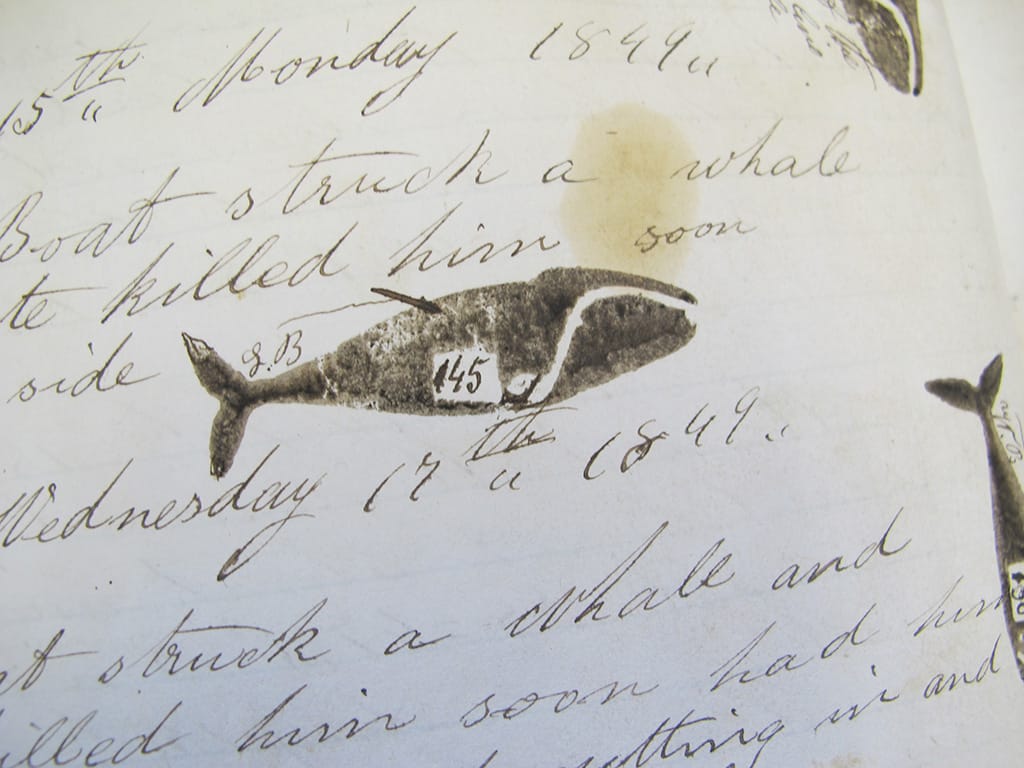 15th Monday 1849
Boat struck a whale
te killed him soon
side
L.B
145
Wednesday 17th 1849
at struck a whale and
illed him soon had him
utting in and